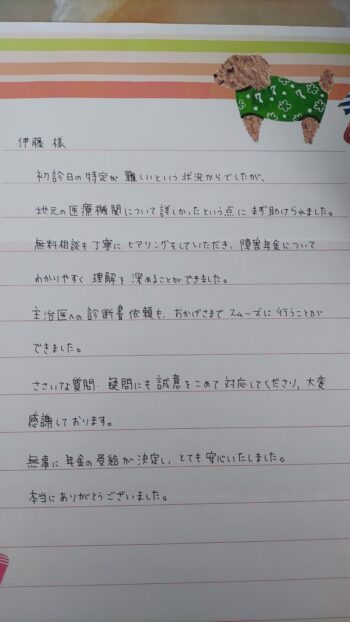 伊藤 様
初診日の特定が 難しいという 状況からでしたが、
地元の医療機関について詳しかったという点に まず助けられました。
無料相談も丁寧に ヒアリングをしていただき、障害年金について
わかりやすく 理解を 深めることができました。
主治医への 診断書 依頼も、おかげさまで スムーズに 行うことが
できました。
ささいな質問・疑問にも 誠意をこめて 対応してくださり、大変
感謝しております。
無事に 年金の受給が 決定し、とても 安心いたしました。
本当に ありがとうございました。